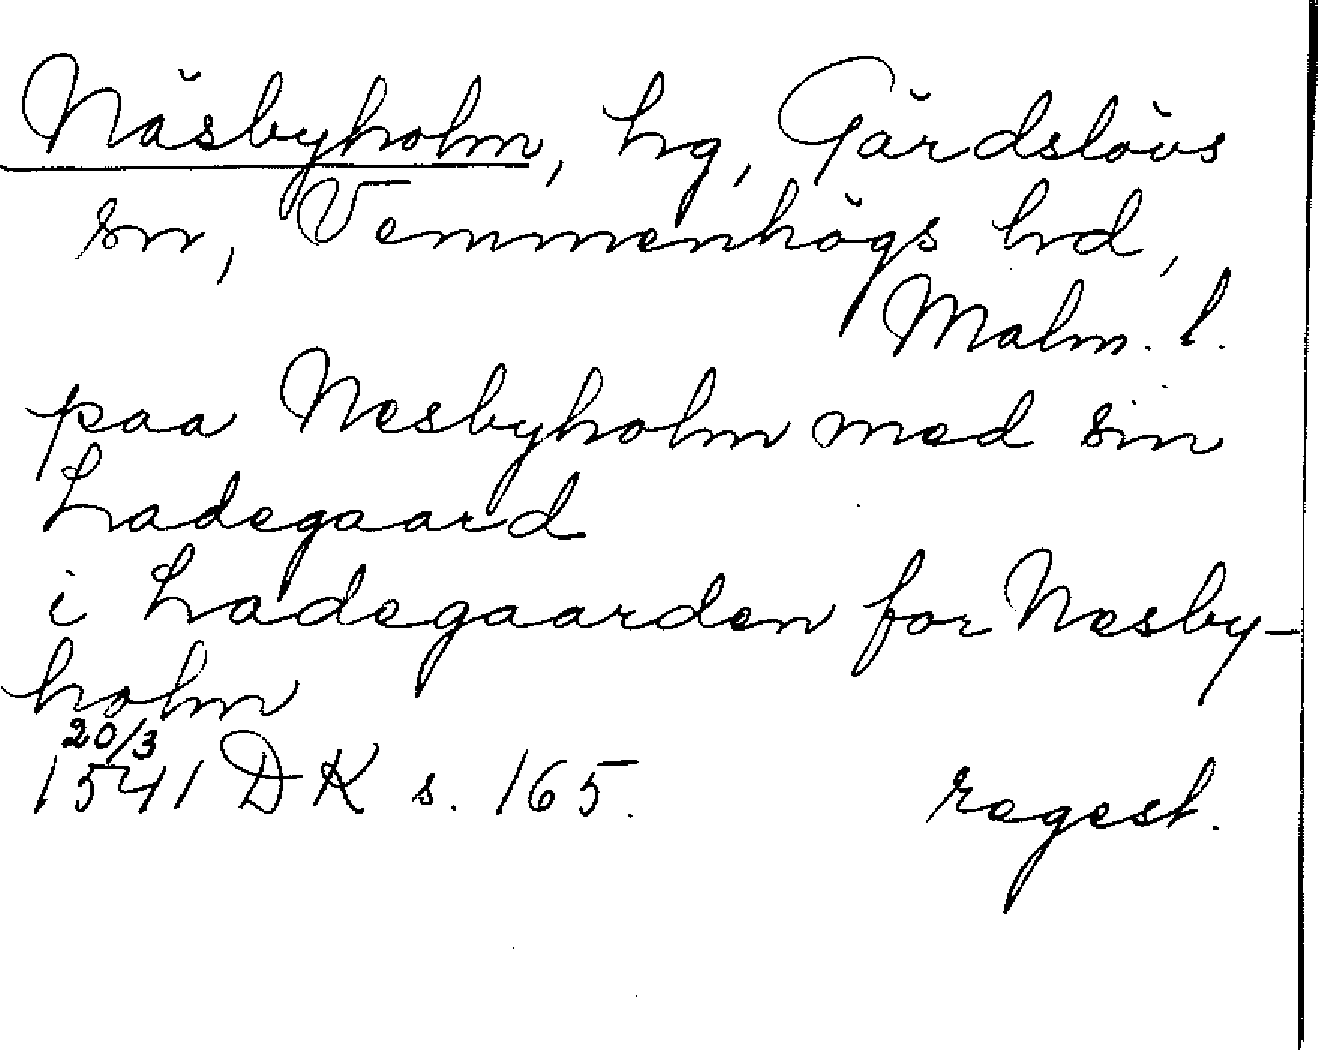 Näsbyholm, hg, Gärdslövs
sn, Vemmenhögs hd,
Malm. l.
paa Nesbyholm med sin
Ladegaard
i Ladegaarden for Nesby-
holm
20/3
1541 DK s. 165. regest.